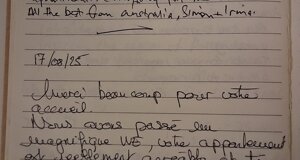 All the best from Australia, Simon + Irina.
17/08/25.
Merci beaucoup pour votre
accueil.
Nous avons passé un
magnifique WE, votre appartement
est réellement agréable